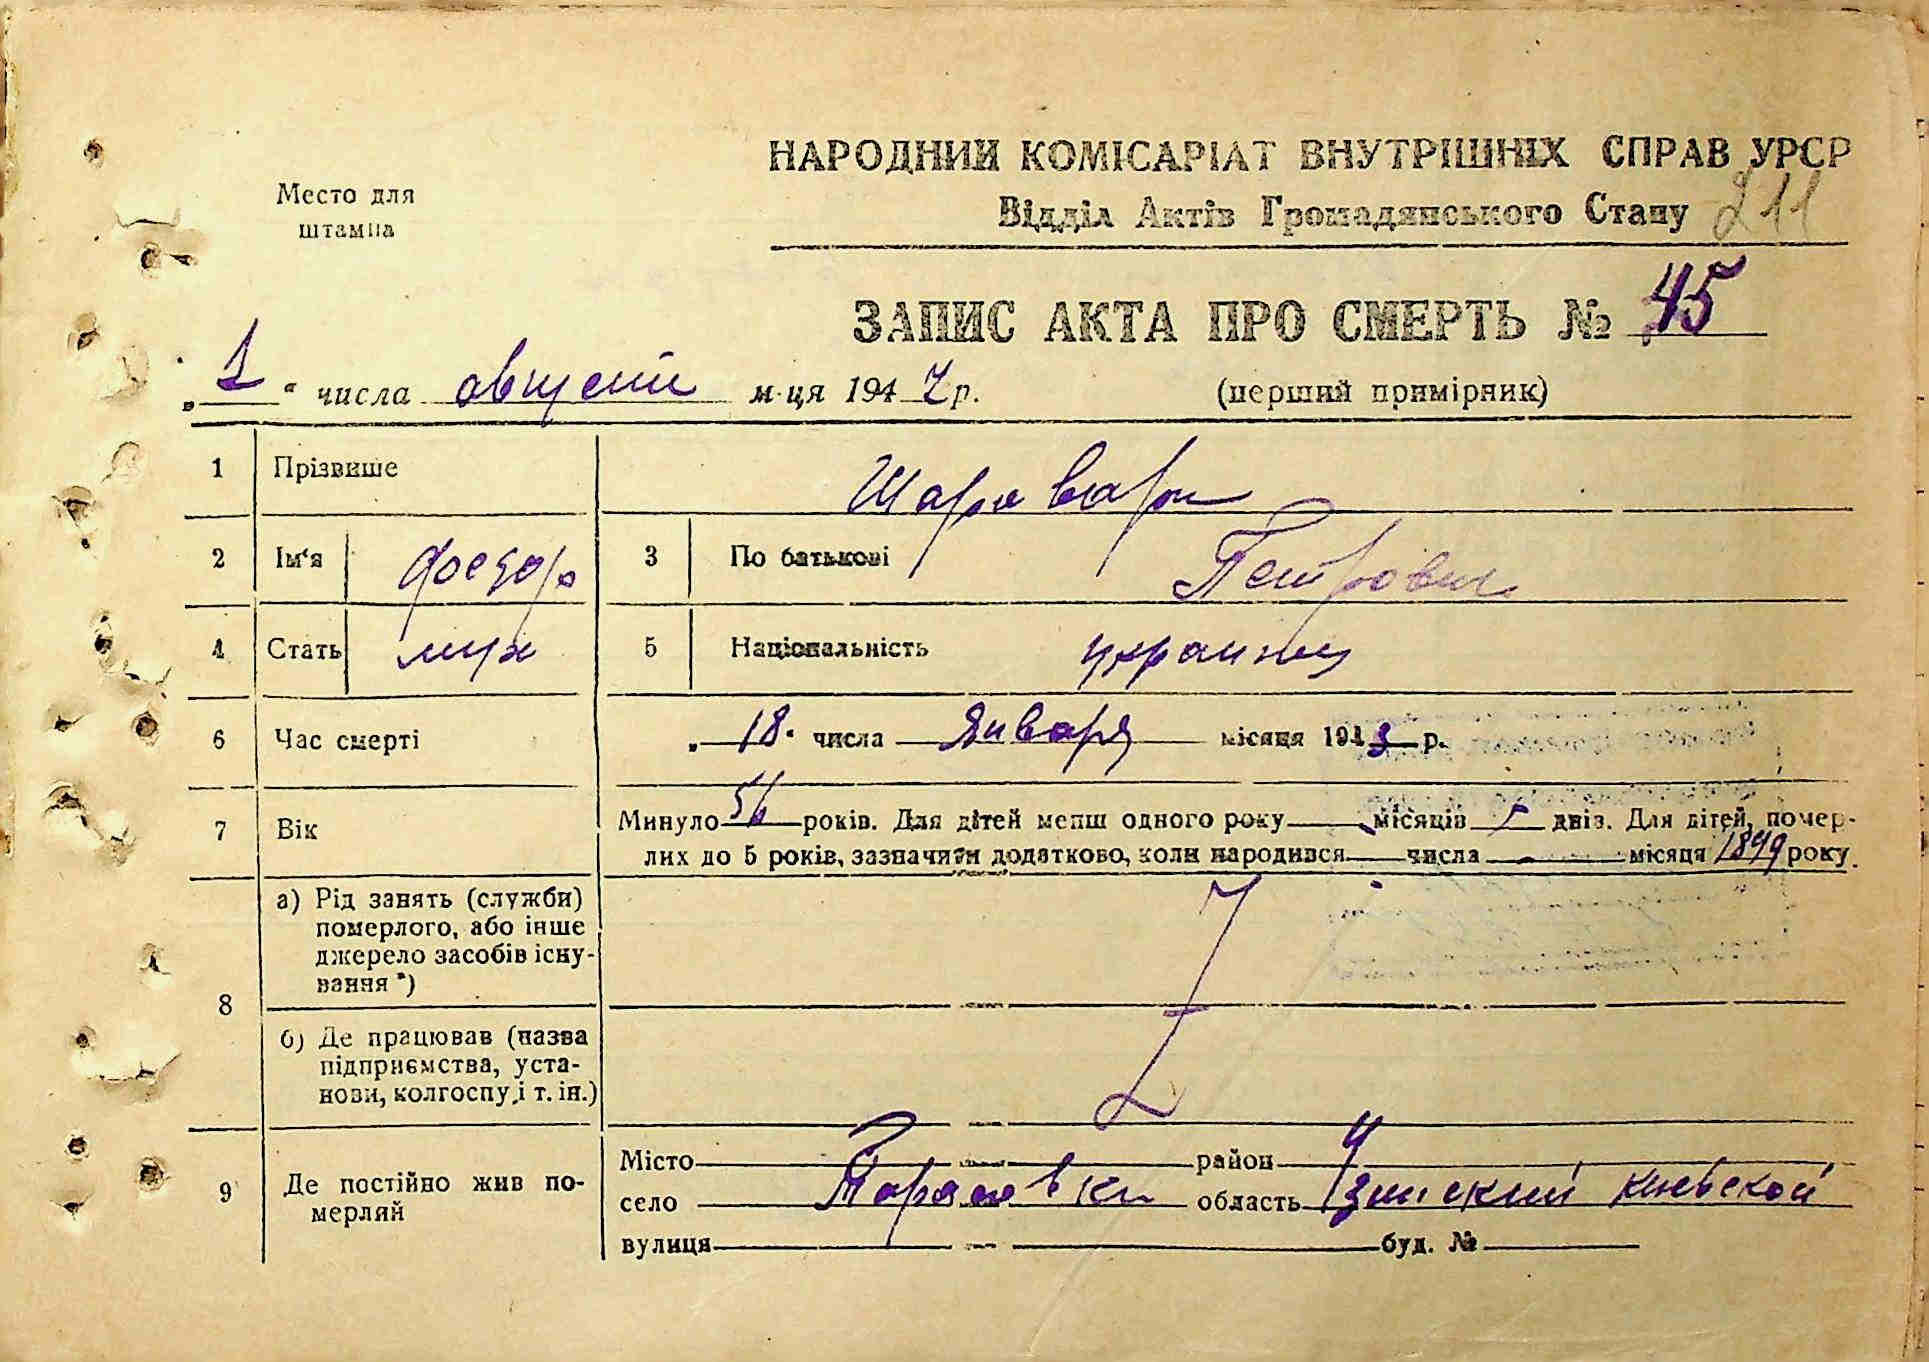 НАРОДНИЙ КОМІСАРІАТ ВНУТРІШНІХ СПРАВ УРСР
Место для
штампа
Відділ Актів Громадянського Стану 211
ЗАПИС АКТА ПРО СМЕРТЬ № 45
„1“ числа августи м-ця 1947 р. (перший примірник)
1 Прізвише Шаравари
2 Ім'я Фоедор 3 По батькові Петрович
4 Стать муж 5 Національність украинец
6 Час смерті „18" числа января місяця 1943 р.
7 Вік Минуло років. Для дітей менш одного року місяців днів. Для дітей, помер-
лих до 5 років, зазначити додатково, коли народився числа місяця 1899 року.
8 а) Рід занять (служби)
померлого, або інше
джерело засобів існу-
вання *)
б) Де працював (назва
підприємства, уста-
нови, колгоспу,і т. ін.)
9 Де постійно жив по-
мерлий
Місто район
село область Узинский Киевской
вулиця буд. №